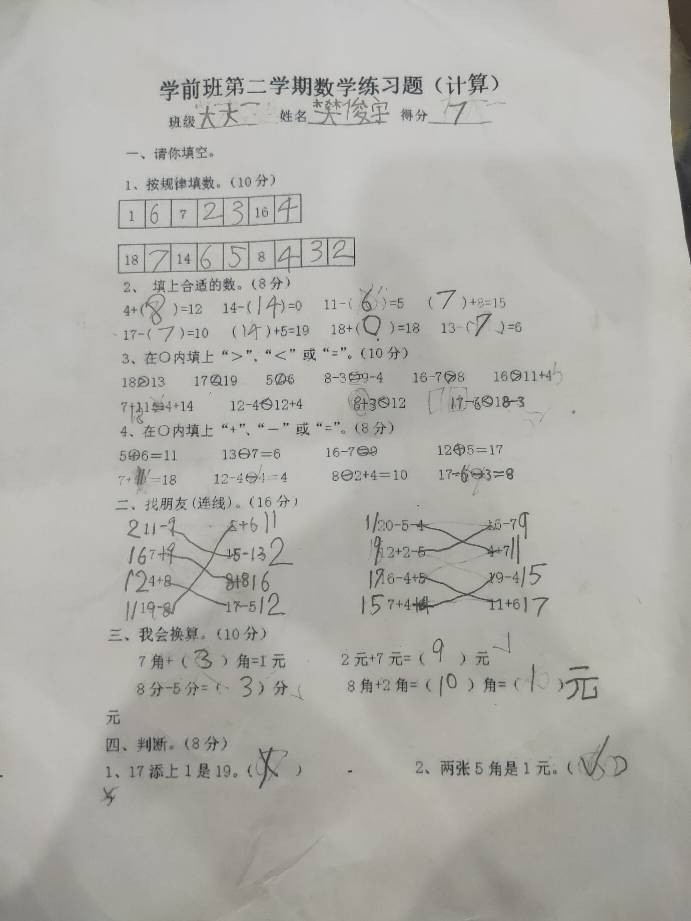 学前班第二学期数学练习题（计算）
班级 大大一 姓名 樊俊宇 得分 7
一、请你填空。
1、按规律填数。（10分）
1 6 7 2 3 16 4
18 7 14 6 5 8 4 3 2
2、 填上合适的数。（8分）
4+(8)=12 14-(14)=0 11-(6)=5 (7)+8=15
17-(7)=10 (14)+5=19 18+(0)=18 13-(7)=6
3、在○内填上“>”、“<”或“=”。（10分）
18>13 17<19 5<6 8-3=9-4 16-7>8 16>11+4
7+11=4+14 12-4<12+4 8+3<12 17-6<18-3
4、在○内填上“+”、“-”或“=”。（8分）
5+6=11 13-7=6 16-7=9 12+5=17
7+11=18 12-4-4=4 8-2+4=10 17-6-3=8
二、找朋友(连线)。（16分）
2 11-9 5+6 11 11 20-5-4 16-7 9
16 7+9 15-13 2 9 12+2-5 4+7 11
12 4+8 8+8 16 17 16-4+5 19-4 15
11 19-8 17-5 12 15 7+4+4 11+6 17
三、我会换算。（10分）
7角+（3）角=1元 2元+7元=（9）元
8分-5分=（3）分 8角+2角=（10）角=（1）元
元
四、判断。（8分）
1、17添上1是19。（×） 2、两张5角是1元。（√）